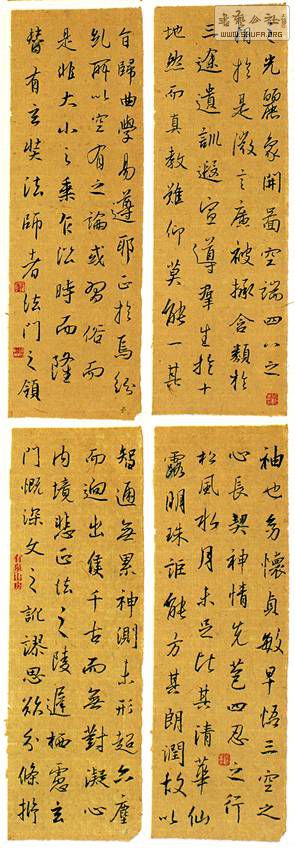 書藝公社
WWW.SHUFA.ORG
之光麗象開圖空端四八之
相於是微言廣被拯含類於
三途遺訓遐宣導羣生於十
地然而真教難仰莫能一其
旨歸曲學易遵邪正於焉紛
糺所以空有之論或習俗而
是非大小之乘乍沿時而隆
替有玄奘法師者法門之領
袖也幼懷貞敏早悟三空之
心長契神情先苞四忍之行
松風水月未足比其清華仙
露明珠詎能方其朗潤故以
智通無累神測未形超六塵
而迥出隻千古而無對凝心
内境悲正法之陵遲栖慮玄
門慨深文之訛謬思欲分條析